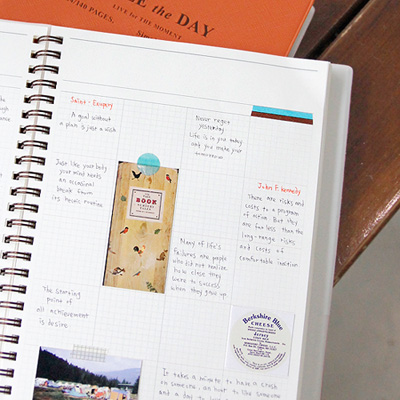 the DAY
LIVE for THE MOMENT
140 PAGES.
Saint-Exupery
A goal without
a plan is just a wish
Never regret
yesterday
Life is in you today
and you make your
tomorrow
Just like your body
your mind needs
an occasional
break from
its hectic routine
BOOK
John F. kennedy
There are risks and
costs to a program
of action But they
are far less than the
long-range risks
and costs of
comfortable inaction
Many of life's
failures are people
who did not realize
how close they
were to success
when they gave up
The starting
point of
all achievement
is desire
Berkshire Blue
CHEESE
It takes a minute to have a crush
on someone, an hour to like someone
and a day to